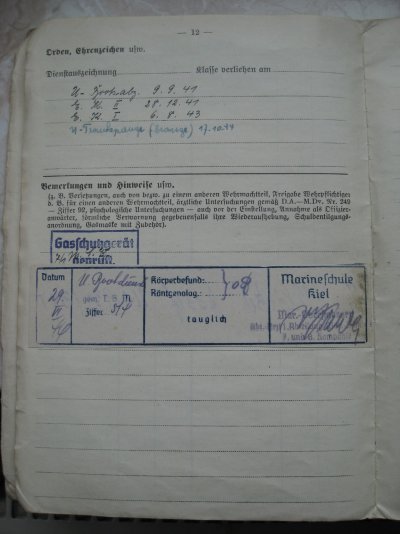 — 12 —
Orden, Ehrenzeichen usw.
Dienstauszeichnung Klasse verliehen am
U-Bootsabz. 9. 9. 41
E. K. II 28. 12. 41
E. K. I 6. 8. 43
U-Frontspange (Bronze) 17.10.44
Bemerkungen und Hinweise usw.
(z. B. Versetzungen, auch von bezw. zu einem anderen Wehrmachtteil, Freigabe Wehrpflichtiger
d. B. für einen anderen Wehrmachtteil, ärztliche Untersuchungen gemäß D.A.—M.Dv. Nr. 249
— Ziffer 92, psychologische Untersuchungen — auch vor der Einstellung, Annahme als Offizier-
anwärter, förmliche Verwarnung gegebenenfalls ihre Wiederaufhebung, Schulbentigungs-
anordnung, Gasmaske mit Zubehör).
Gasschutzgerät
Datum
29.
VI
40
U Bootdienst
gem. T. B. M.
Ziffer
Körperbefund:
Röntgenolog.:
tauglich
Marineschule
Kiel